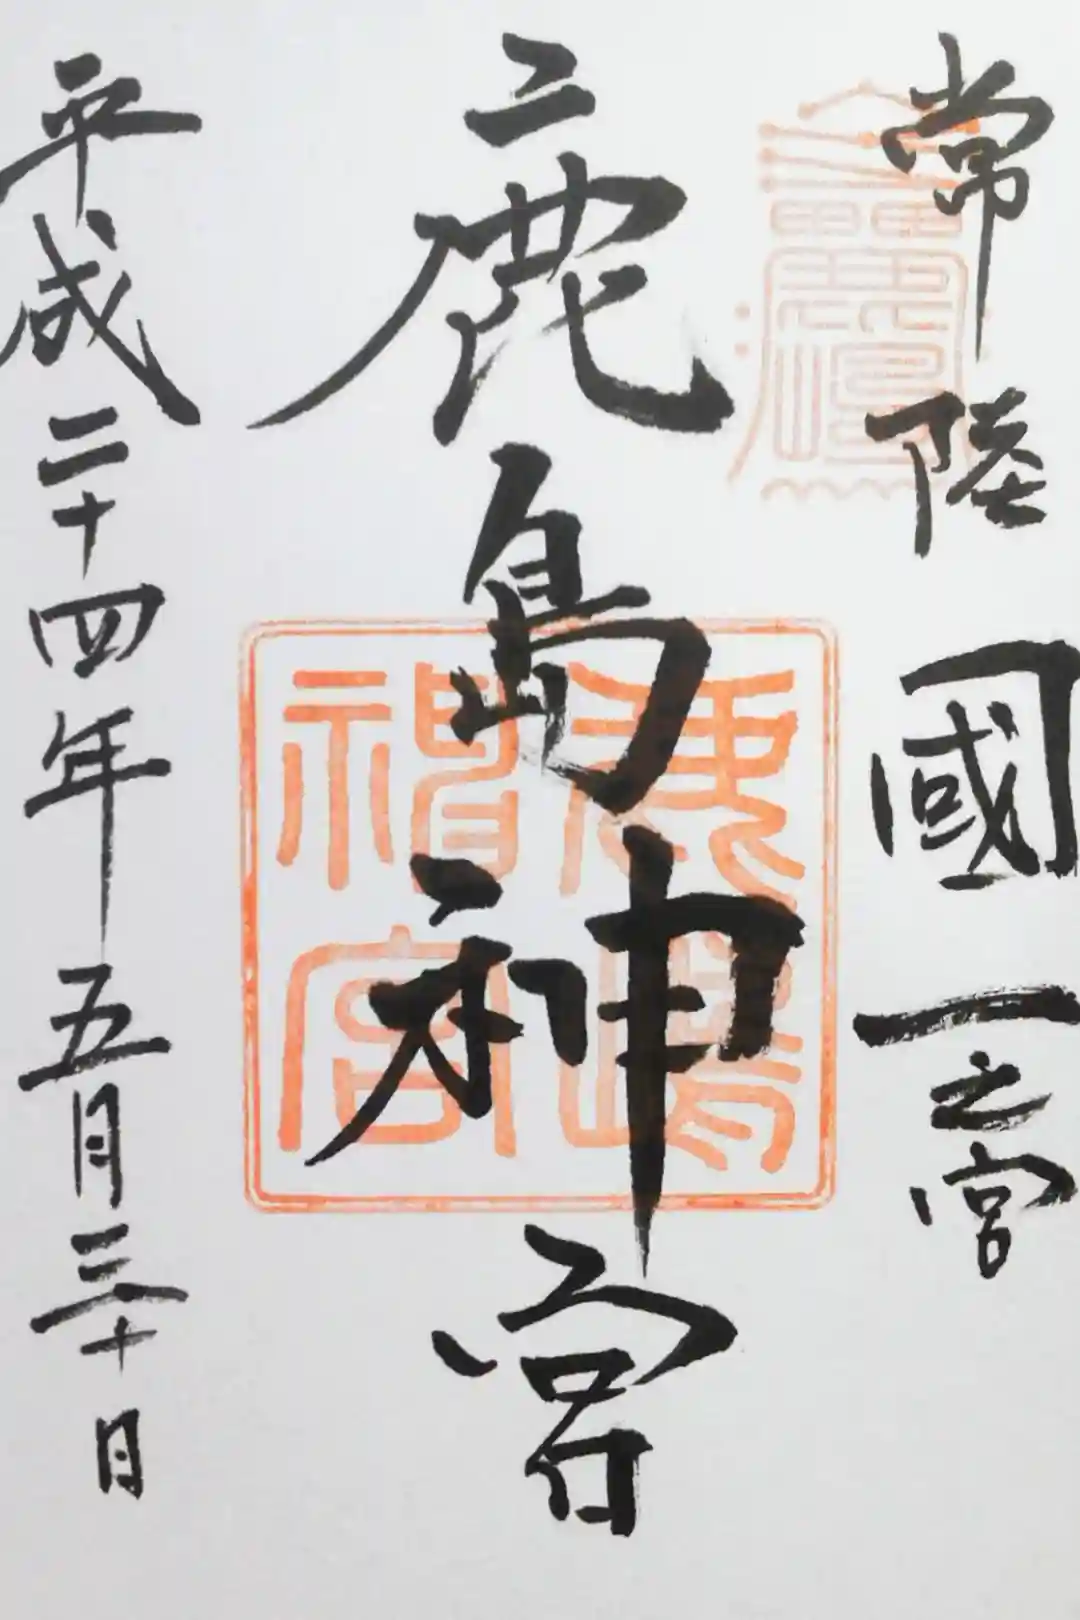 常陸國一之宮
鹿島神宮
平成二十四年五月三十日
鹿嶋神宮